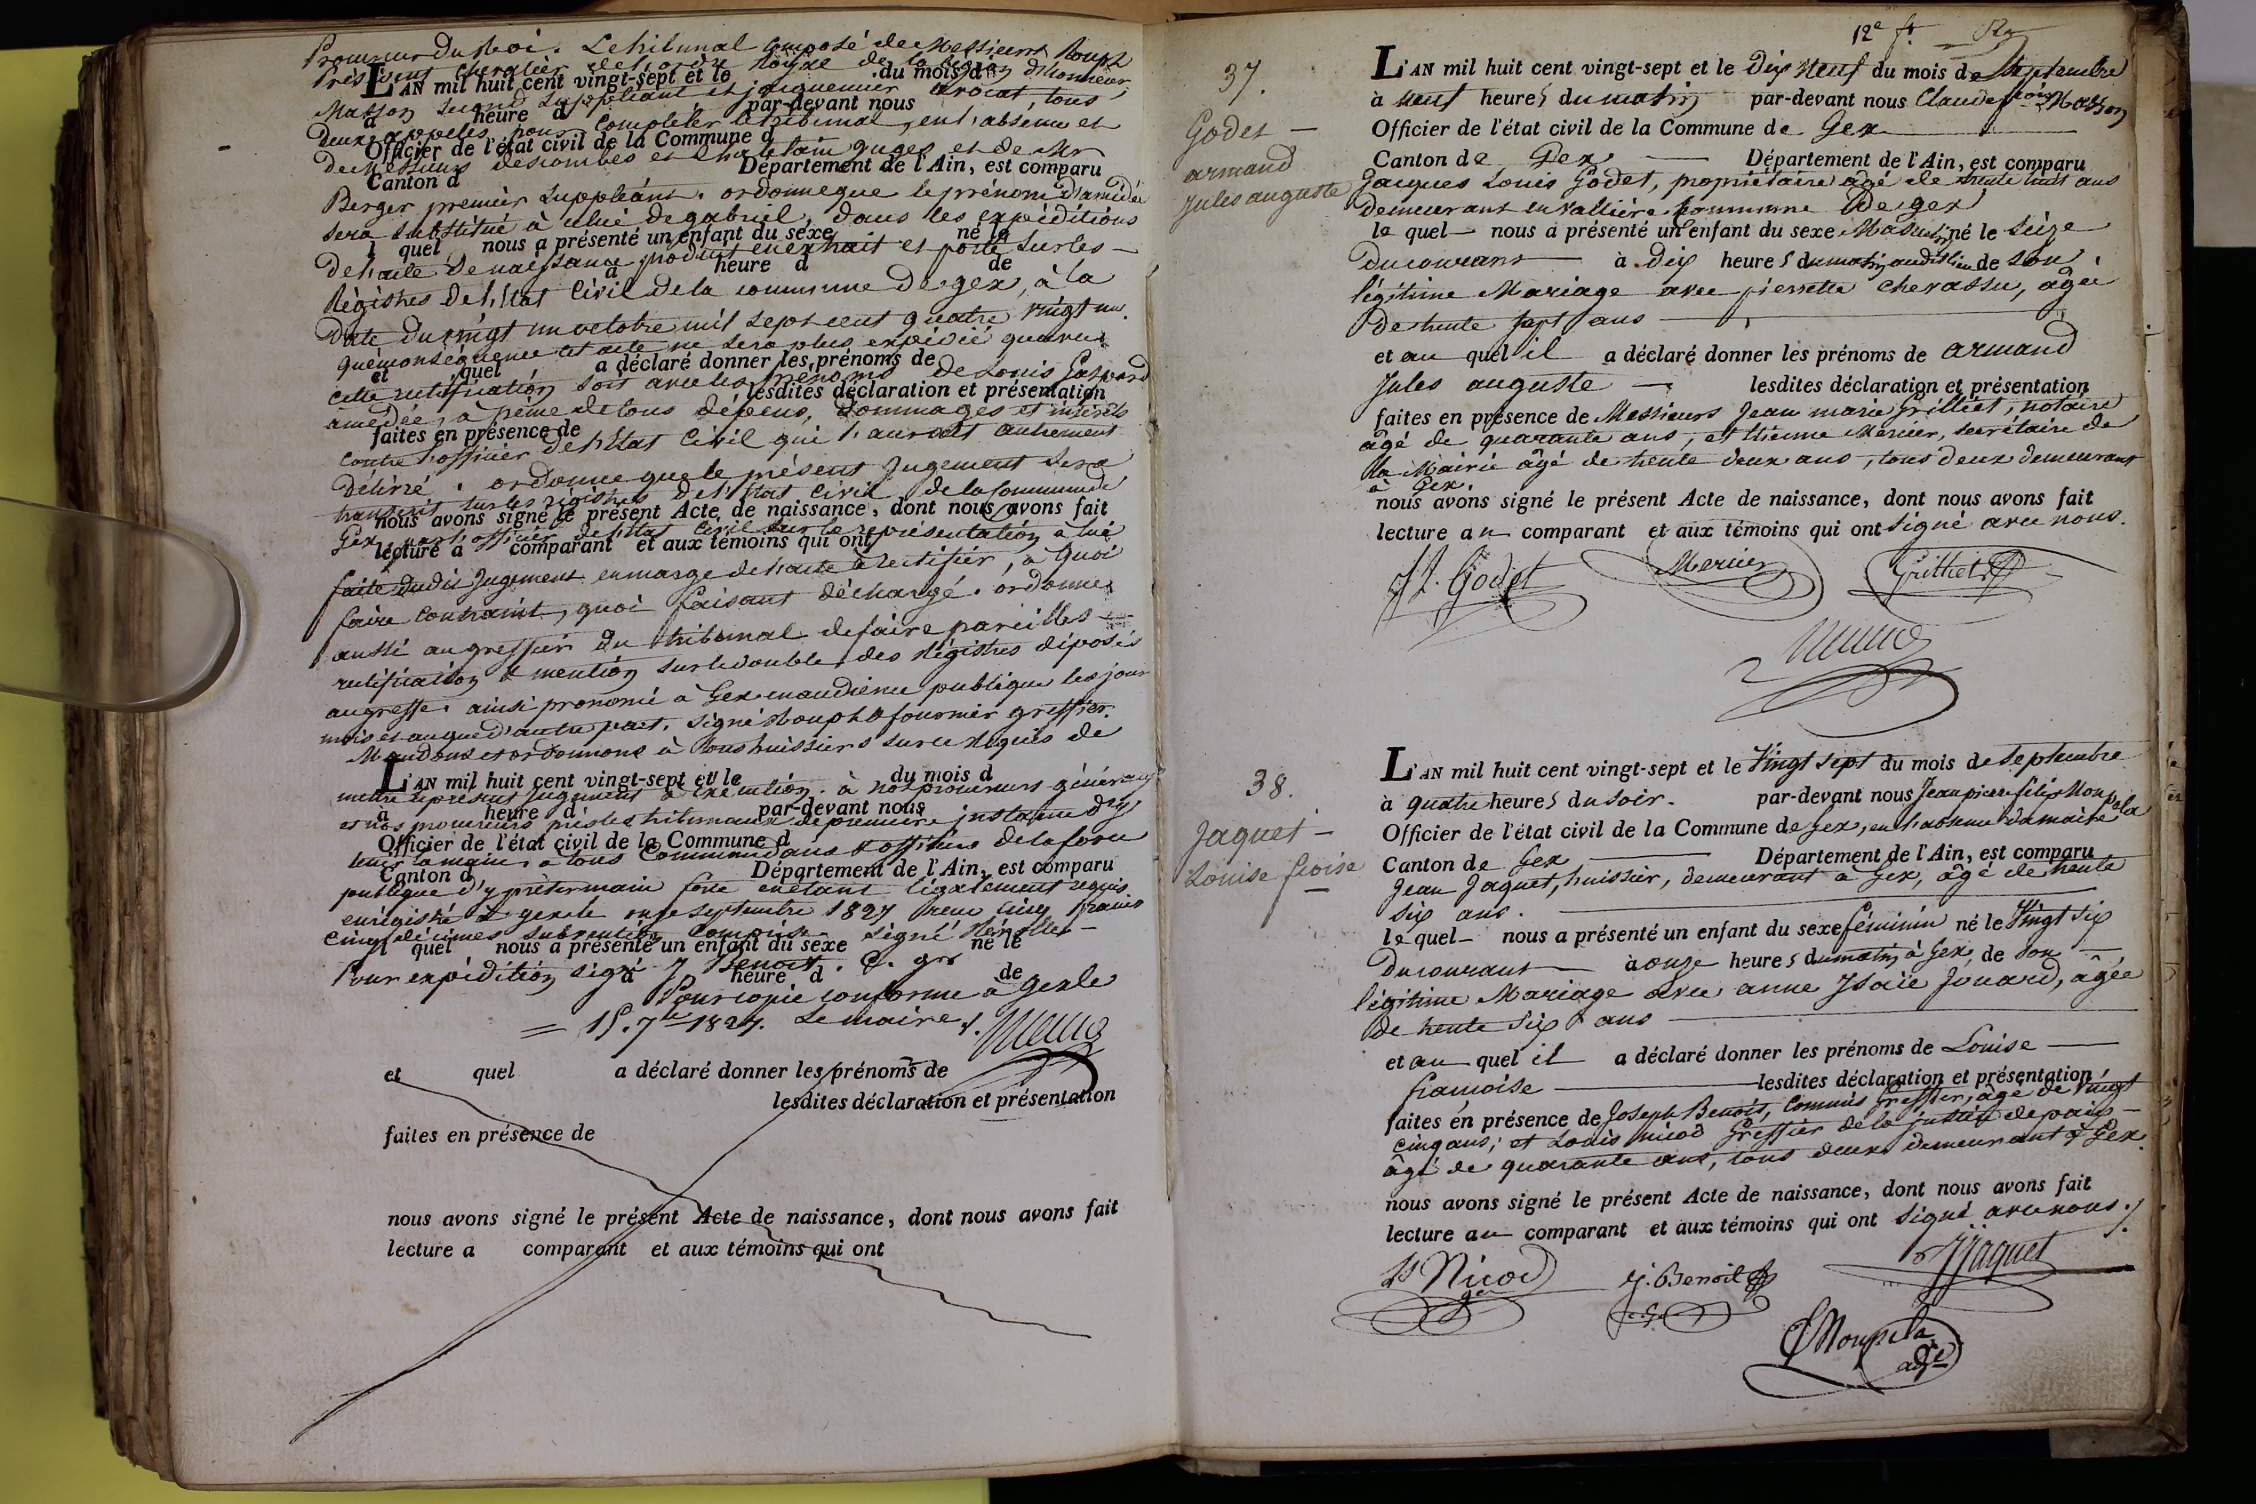 Procureur Du Roi. Le tribunal composé de Messieurs Rouph
Président chevalier de l'ordre Royal de la légion d'honneur,
L'AN mil huit cent vingt-sept et le du mois d
Masson second suppléant et jacquemier avocat, tous
a heure d par-devant nous
Deux appelés pour completer le tribunal, en l'absence et
Officier de l'état civil de la Commune d
De Messieurs descombes et Chatelain juges et de Mr
Canton d Département de l'Ain, est comparu
Berger premier suppléant. ordonne que le prénom d'amédée
sera substitué à celui de gabriel, dans les expéditions
l quel nous a présenté un enfant du sexe né le
De l'acte De naissance produit en extrait et porté sur les
à heure d de
Régistres De l'Etat Civil de la commune De gex, à la
Date du vingt un octobre mil sept cent quatre vingt un.
Qu'en conséquence cet acte ne sera plus expédié qu'avec
et quel a déclaré donner les prénoms de
cette rectification soit avec les prénoms De Louis Gaspard
lesdites déclaration et présentation
amédée, à peine de tous dépens, dommages et intérêts
faites en présence de
contre l'officier De l'Etat Civil qui l'auroit autrement
Délivré. ordonne que le présent Jugement sera
transcrit sur les régistres De l'Etat Civil de la Commune de
nous avons signé le présent Acte de naissance, dont nous avons fait
Gex, par l'officier de l'Etat Civil sur la représentation à lui
lecture a comparant et aux témoins qui ont
faite dudit Jugement en marge de l'acte à rectifier, à Quoi
faire contraint, quoi faisant déchargé. ordonne
aussi au greffier Du tribunal de faire pareilles
rectification & mention sur le double des Régistres déposés
au greffe. ainsi prononcé à Gex en audience publique les jour
mois et an que d'autre part. signé Rouph & fournier greffier.
Mandons et ordonnons à tous huissiers sur ce requis de
L'AN mil huit cent vingt-sept et le du mois d
mettre le présent Jugement à Exécution. à nos procureurs généraux
a heure d par-devant nous
et nos procureurs près les tribunaux de première instance d'y
Officier de l'état civil de la Commune d
tenir la main. à tous Commandans & officiers de la force
Canton d Département de l'Ain, est comparu
publique d'y prêter main forte en étant légalement requis.
enrégistré à gex le onze septembre 1827 reçu cinq francs
cinq décimes subvention comprise. signé
l quel nous a présenté un enfant du sexe né le
Pour expédition signé J Benoit. C. gr
à heure d de
Pour copie conforme à Gex le
= 15. 7bre 1827. Le maire
et quel a déclaré donner les prénoms de
lesdites déclaration et présentation
faites en présence de
nous avons signé le présent Acte de naissance, dont nous avons fait
lecture a comparant et aux témoins qui ont
12e ft.
37.
Godet
armand
Jules auguste
L'AN mil huit cent vingt-sept et le Dix Neuf du mois de Septembre
à neuf heures du matin par-devant nous Claude fcois Masson
Officier de l'état civil de la Commune de Gex
Canton de Gex Département de l'Ain, est comparu
Jacques Louis Godet, propriétaire âgé de trente huit ans
demeurant en Vallière commune De gex
le quel nous a présenté un enfant du sexe Masculin né le seize
Du courant à Dix heures du matin audit lieu de son
légitime Mariage avec pierrette Chevassu, âgée
De trente sept ans
et au quel il a déclaré donner les prénoms de armand
Jules auguste lesdites déclaration et présentation
faites en présence de Messieurs Jean marie Grilliet, notaire
âgé de quarante ans, et Etienne Mercier, secrétaire de
la Mairie âgé de trente deux ans, tous deux demeurant
à Gex.
nous avons signé le présent Acte de naissance, dont nous avons fait
lecture au comparant et aux témoins qui ont signé avec nous.
J L. Godet Mercier Grilliet
38.
Jaquet
Louise fcoise
L'AN mil huit cent vingt-sept et le Vingt sept du mois de Septembre
à quatre heures du soir. par-devant nous Jean pierre félix Moupela
Officier de l'état civil de la Commune de Gex, en l'absence du maire
Canton de Gex Département de l'Ain, est comparu
Jean Jaquet, huissier, demeurant à Gex, âgé de trente
six ans.
le quel nous a présenté un enfant du sexe féminin né le Vingt six
Du courant à onze heures du matin à Gex, de son
légitime Mariage avec anne Isaïe Jouard, âgée
De trente six ans
et au quel il a déclaré donner les prénoms de Louise
françoise lesdites déclaration et présentation
faites en présence de Joseph Benoit, Commis Greffier, âgé de vingt
cinq ans; et Louis nicod Greffier de la justice de paix
âgé de quarante ans, tous deux demeurant à Gex.
nous avons signé le présent Acte de naissance, dont nous avons fait
lecture au comparant et aux témoins qui ont signé avec nous./.
Ls Nicod J. Benoit Jaquet
gr
Moupela
adjt